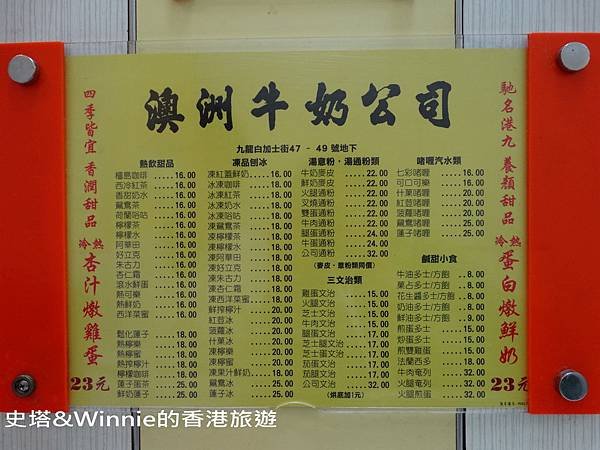 澳洲牛奶公司
九龍白加士街47 - 49 號地下
馳名港九 養顏甜品
冷熱 蛋白燉鮮奶
23元
四季皆宜 香潤甜品
冷熱 杏汁燉雞蛋
23元
熱飲甜品
福島咖啡 ..... 16.00
西冷紅茶 ..... 16.00
香甜奶水 ..... 16.00
鴛鴦茶 ..... 16.00
荷蘭哈咕 ..... 16.00
檸檬茶 ..... 16.00
檸檬水 ..... 16.00
阿華田 ..... 16.00
好立克 ..... 16.00
朱古力 ..... 16.00
杏仁霜 ..... 16.00
滾水鮮蛋 ..... 16.00
熱可樂 ..... 16.00
熱鮮奶 ..... 16.00
西洋菜蜜 ..... 16.00
鬆化蓮子 ..... 18.00
熱檸樂 ..... 18.00
熱檸蜜 ..... 18.00
熱鮮檸汁 ..... 18.00
檸檬咖啡 ..... 18.00
蓮子蛋茶 ..... 25.00
鮮奶蓮子 ..... 25.00
凍品刨冰
凍紅蓋鮮奶 ..... 18.00
冰凍咖啡 ..... 18.00
冰凍紅茶 ..... 18.00
冰凍奶水 ..... 18.00
冰凍哈咕 ..... 18.00
凍鴛鴦茶 ..... 18.00
凍檸檬茶 ..... 18.00
凍檸檬水 ..... 18.00
凍阿華田 ..... 18.00
凍好立克 ..... 18.00
凍朱古力 ..... 18.00
凍杏仁霜 ..... 18.00
凍西洋菜蜜 ..... 18.00
鮮搾檸汁 ..... 20.00
紅荳冰 ..... 20.00
菠蘿冰 ..... 20.00
什菓冰 ..... 20.00
凍檸樂 ..... 20.00
凍檸蜜 ..... 20.00
凍菓汁鮮奶 ..... 20.00
鴛鴦冰 ..... 25.00
蓮子冰 ..... 25.00
湯意粉 · 湯通粉類
牛奶麥皮 ..... 22.00
鮮奶麥皮 ..... 22.00
火腿通粉 ..... 22.00
叉燒通粉 ..... 22.00
雙蛋通粉 ..... 22.00
牛肉通粉 ..... 22.00
腿蛋通粉 ..... 24.00
牛蛋通粉 ..... 24.00
公司通粉 ..... 32.00
(麥皮、意粉類同價)
三文治類
雞蛋文治 ..... 15.00
火腿文治 ..... 15.00
芝士文治 ..... 15.00
牛肉文治 ..... 15.00
菠蛋文治 ..... 17.00
腿蛋文治 ..... 17.00
芝士腿文治 ..... 17.00
芝士蛋文治 ..... 17.00
茄蛋文治 ..... 17.00
茄腿文治 ..... 17.00
公司文治 ..... 32.00
(烘底加1元)
啫喱汽水類
七彩啫喱 ..... 16.00
可口可樂 ..... 16.00
什菓啫喱 ..... 20.00
紅荳啫喱 ..... 20.00
菠蘿啫喱 ..... 20.00
鴛鴦啫喱 ..... 25.00
蓮子啫喱 ..... 25.00
鹹甜小食
牛油多士/方飽 .. 8.00
菓占多士/方飽 .. 8.00
花生醬多士/方飽 .. 8.00
奶油多士/方飽 .. 8.00
鮮油多士/方飽 .. 8.00
煎蛋多士 ..... 15.00
炒蛋多士 ..... 15.00
煎雙雞蛋 ..... 20.00
法蘭西多 ..... 18.00
牛肉奄列 ..... 32.00
火腿奄列 ..... 32.00
火腿煎蛋 ..... 32.00
史塔&Winnie的香港旅遊